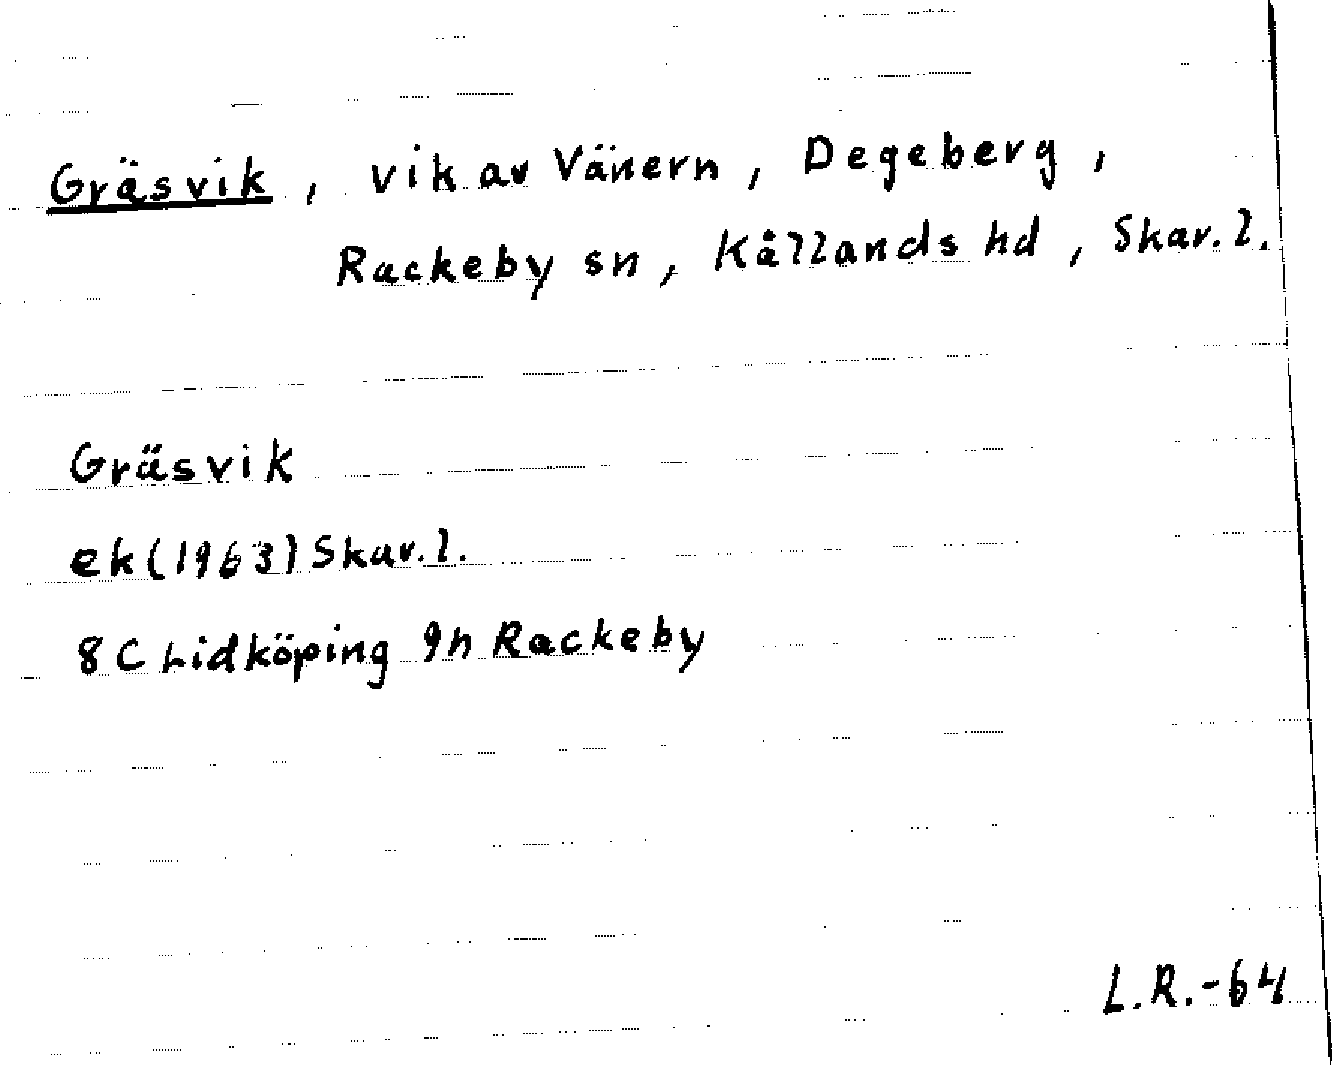 Gräsvik, vik av Vänern, Degeberg,
Rackeby sn, Kållands hd, Skar. l.
Gräsvik
ek (1963) Skar. l.
8 C Lidköping 9h Rackeby
L.R.-64